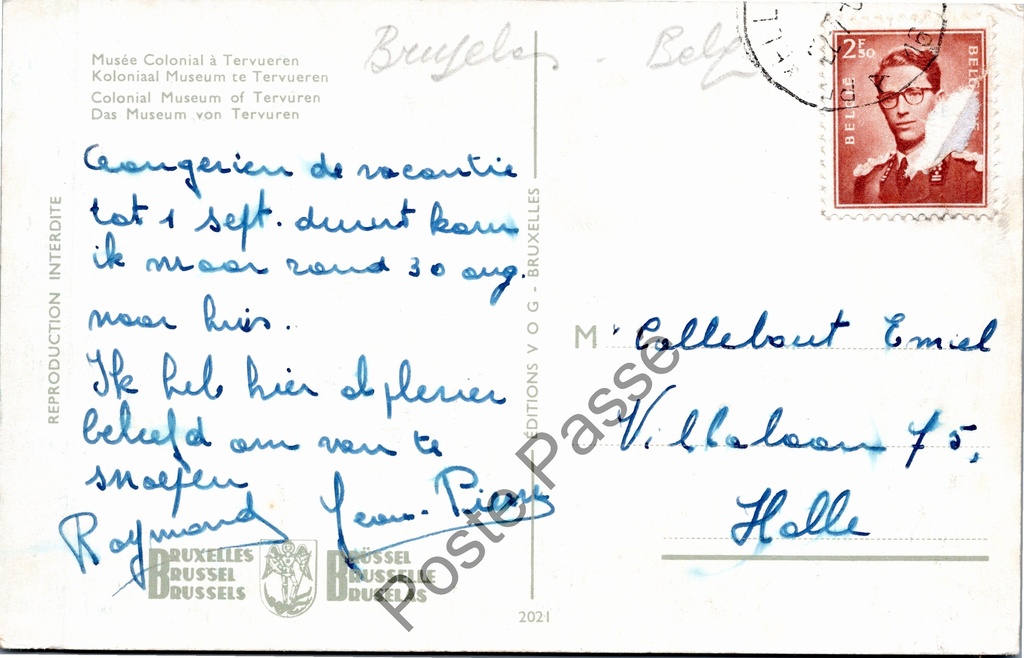 Brussels - Belg
Musée Colonial à Tervueren
Koloniaal Museum te Tervueren
Colonial Museum of Tervuren
Das Museum von Tervuren
de vacantie
tot 1 sept. duurt kom
ik maar rond 30 aug.
naar huis.
Ik heb hier al plezier
beleefd om van te
snoepen
Raymond Jean-Pierre
REPRODUCTION INTERDITE
BRUXELLES
BRUSSEL
BRUSSELS
BRÜSSEL
BRUSSELLE
BRUSELAS
ÉDITIONS V O G - BRUXELLES
2021
2F50
BELGIË
M Callebaut Emiel
Villalaan 75,
Halle
Poste Passé